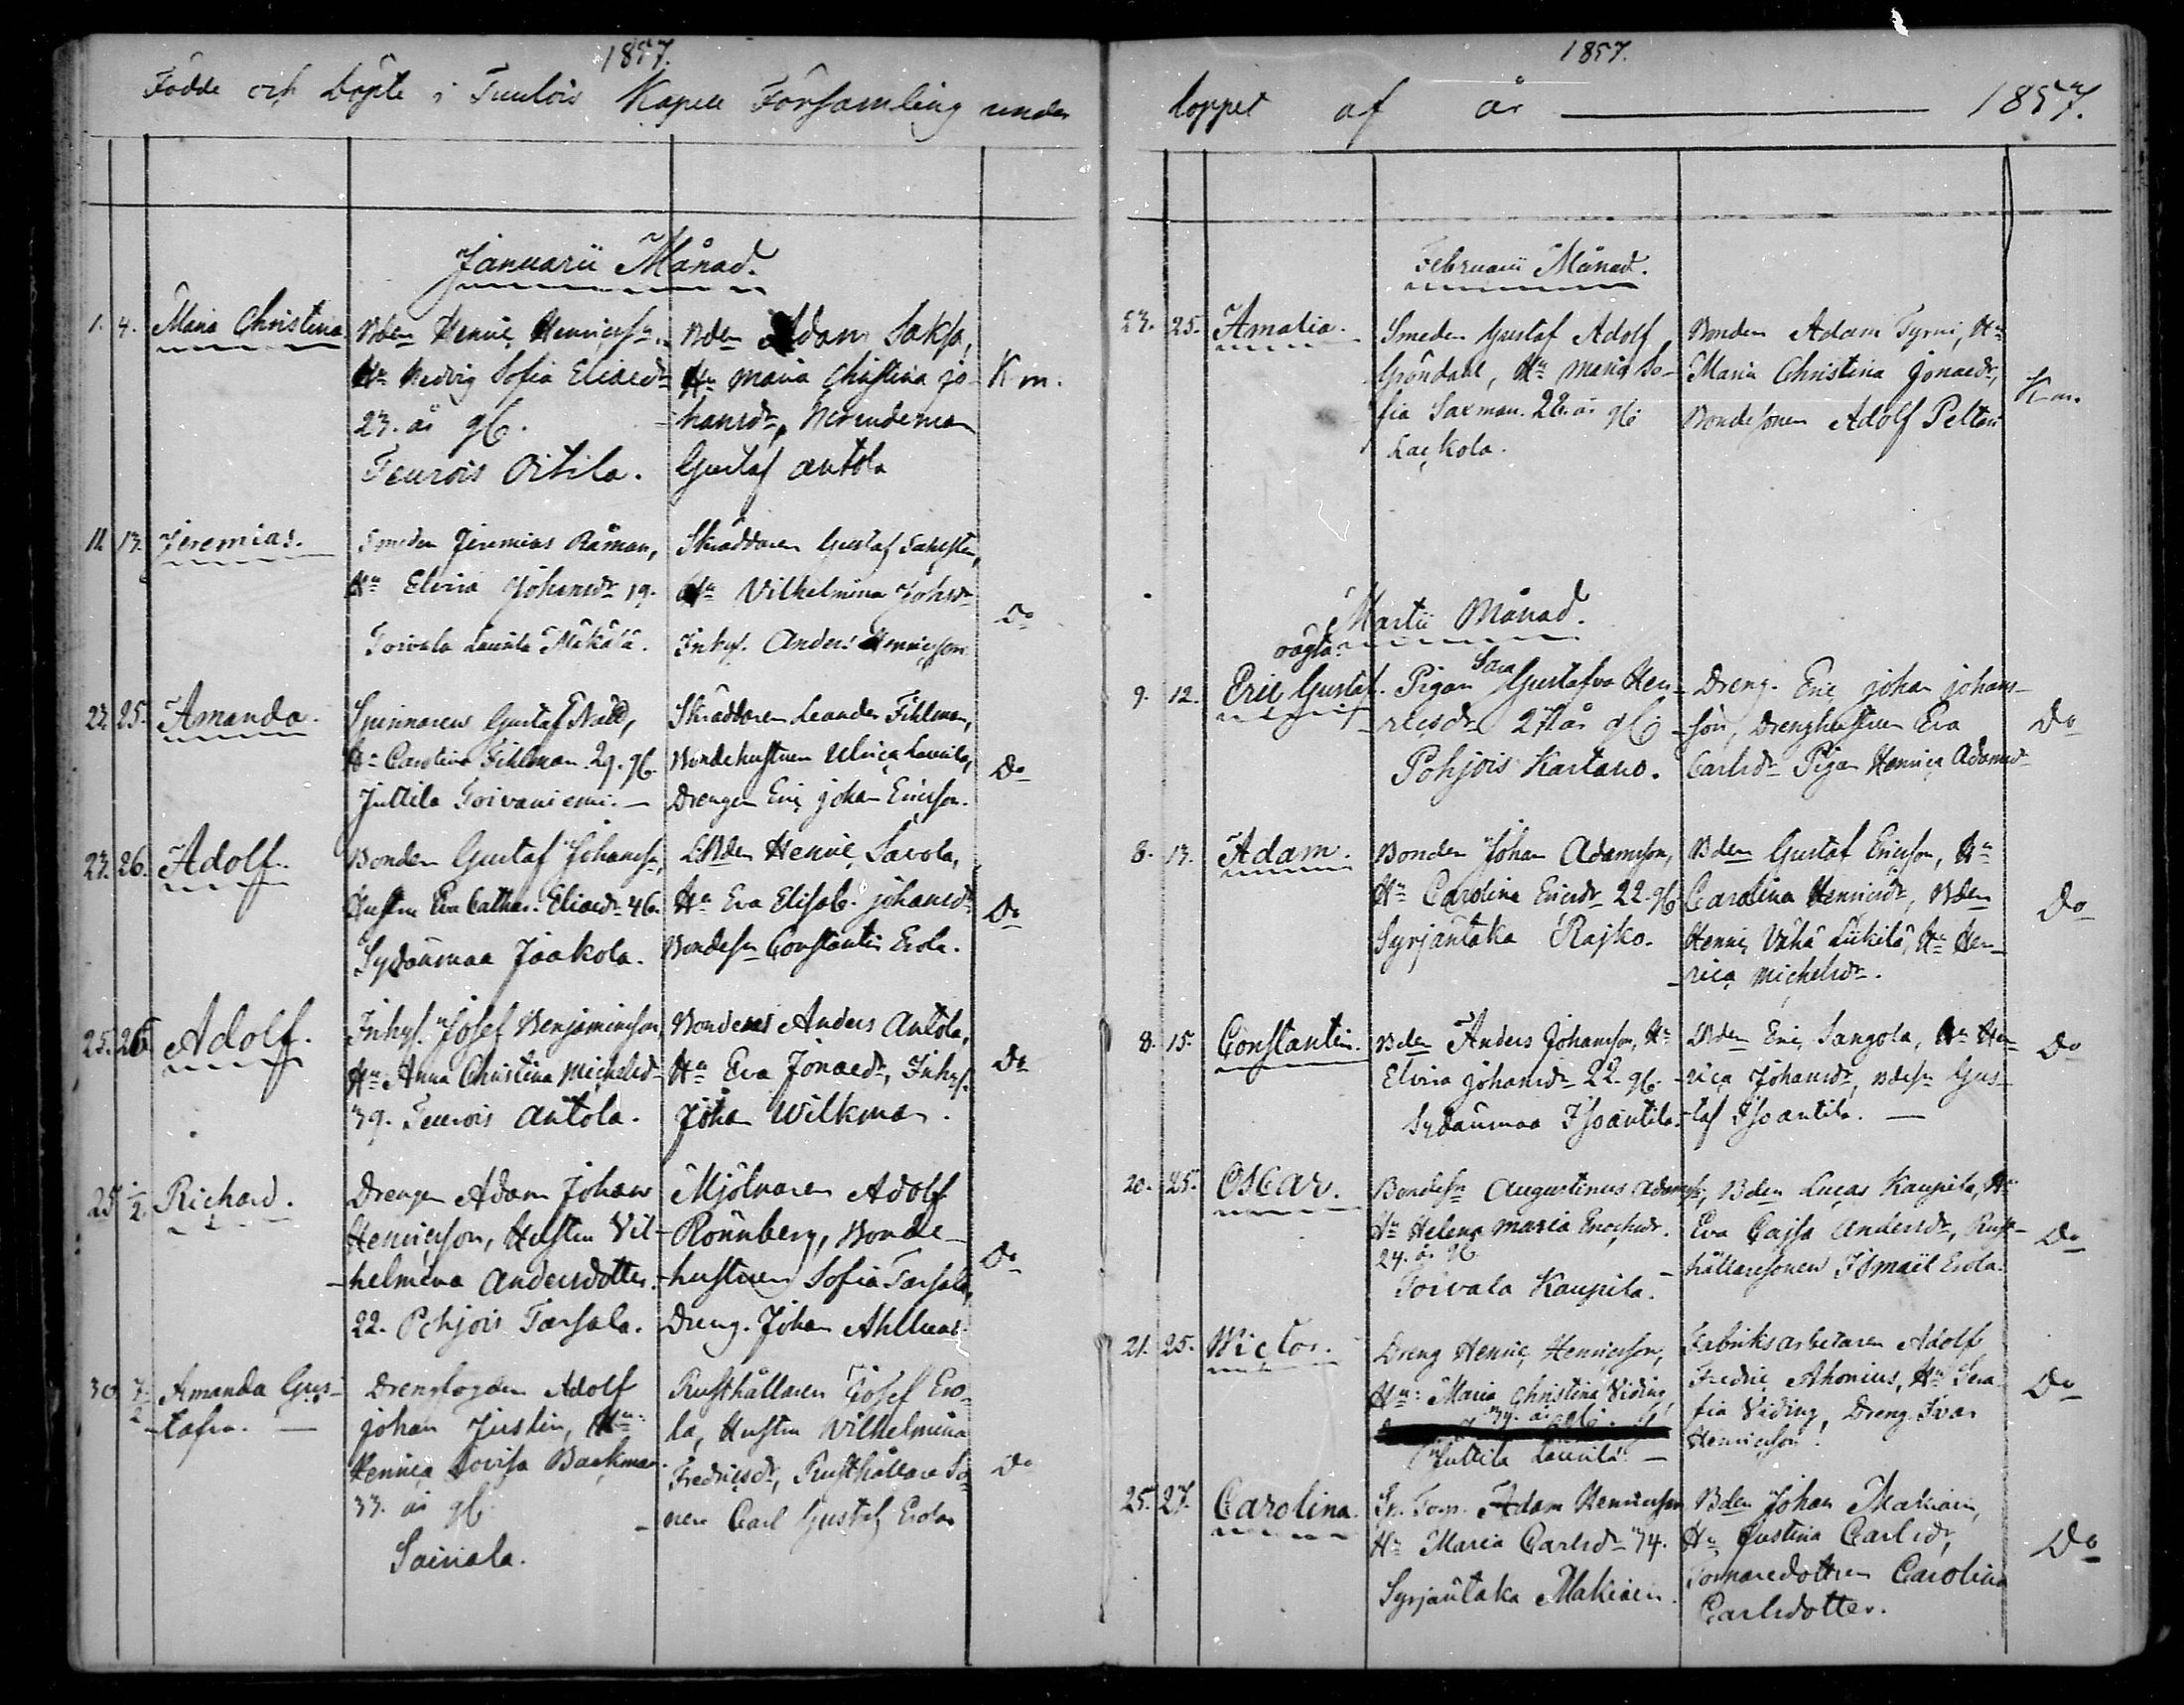 1857.
Födde och Döpte i Tuulois Kapell Församling under
Januarii Månad.
1. 4. Maria Christina
Bden Henric Henricss:n
H:u Hedvig Sofia Eliaedr
23. år gl.
Teurois Oitila.
Bden Adam Saksa,
H:u Maria Christina Jo-
hansdr,
Gustaf Antola
K m.
11. 13. Jeremias.
Smeden Jeremias Råman,
H:u Elvira Johansdr 19.
Toivala Laurila Mäkälä.
Skräddaren Gustaf
H:u Vilhelmina Johsdr
Inhys. Anders Henricsson
Do
23. 25. Amanda.
Spinnaren Gustaf
H:u Carolina Fihlman 29. gl.
Juttila Toivaniemi. —
Skräddaren Leander Fihlman,
Bondehustrun Ulrica Laurila,
Drengen Eric Johan Ericsson.
Do
23. 26. Adolf.
Bonden Gustaf Johanss:n,
Hustru Eva Cathar. Eliaedr 46.
Sydänmaa Jaakola.
Bden Henric Savola,
H:u Eva Elisab. Johansdr
Bondes:n Constantin Erola.
Do
25. 26. Adolf.
Inhys. Josef Benjaminsson,
H:u Anna Christina Michelsdr
39. Teurois Antola.
Bonden Anders Antola,
H:u Eva Jonaedr, Inhys.
Johan Wilkman.
Do
25. 1/2. Richard.
Drengen Adam Johan
Henricsson, Hustrun Vil-
helmina Andersdotter.
22. Pohjois Tarsala.
Mjölnaren Adolf
Rönnberg, Bonde-
hustrun Sofia Tarsala,
Dreng. Johan
Do
30. 7/2 Amanda Gus-
tafva. —
Drengfogden Adolf
Johan Justin, H:u
Henrica Lovisa Backman
33. år gl.
Sairiala.
Rusthållaren Josef Ero-
la, Hustru Vilhelmina
Fredricsdr, Rusthållare So-
nen Carl Gustaf Erola
Do
1857.
loppet af år — 1857.
Februarii Månad.
23. 25. Amalia.
Smeden Gustaf Adolf
Gröndahl, H:u Maria So-
fia Saxman. 28. år gl.
Lackola.
Bonden Adam Tyrni, H:u
Maria Christina Jonaedr,
Bondesonen Adolf Peltari
K m.
Martii Månad.
oägta
9. 12. Eric Gustaf.
Pigan Sara Gustafva Hen-
ricsdr 27 år gl.
Pohjois Kartano.
Dreng. Eric Johan Johans-
son, Dreng hustrun Eva
Carlsdr Pigan Henrica Adamsdr
Do
8. 13. Adam.
Bonden Johan Adamsson,
H:u Carolina Ericsdr 22. gl.
Syrjäntaka Rajko.
Bden Gustaf Ericsson, H:u
Carolina Henricsdr, Bden
Henric Vähä Liikilä, H:u Hen-
rica Michelsdr.
Do
8. 15. Constantin.
Bden Anders Johansson, H:u
Elvira Johansdr 22. gl.
Sydänmaa Isoantila.
Bden Eric Sangola, H:u Hen-
rica Johansdr, Bdes:n Gus-
taf Isoantila. —
Do
20. 25. Oscar.
Bondes:n Augustinus Adamss:n,
H:u Helena Maria Enochsdr.
24. år gl.
Toivala Kaupila.
Bden Lucas Kaupila, H:u
Eva Cajsa Andersdr, Rust-
hållaresonen Ismael Erola.
Do
21. 25. Victor.
Dreng Henric Henricsson,
H:u Maria Christina Viding,
34. år gl.
Juttila Laurila. —
Fabriksarbetaren Adolf
Fredric Ahonius, H:u Sera-
fia Viding, Dreng Ivar
Henricsson.
Do
25. 27. Carolina.
Adam Henricsson
H:u Maria Carlsdr 34.
Syrjäntaka Makiain.
Bden Johan Makiain,
H:u Justina Carlsdr,
Tornaredottren Carolina
Carlsdotter.
Do